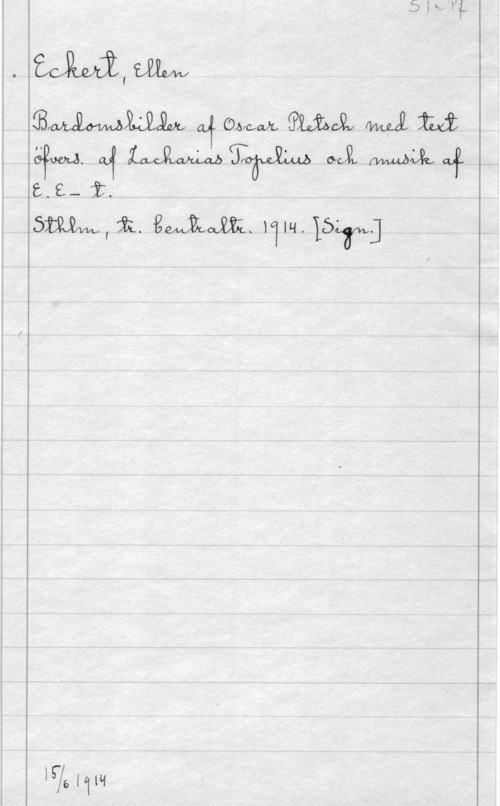 Eckert, Ellen
Bardomsbilder af Oscar Pletsch med text
öfvers. af Zacharias Topelius och musik af
E. E– t.
Sthlm, tr. Centraltr. 1914. [Sign.]
15/6 1914